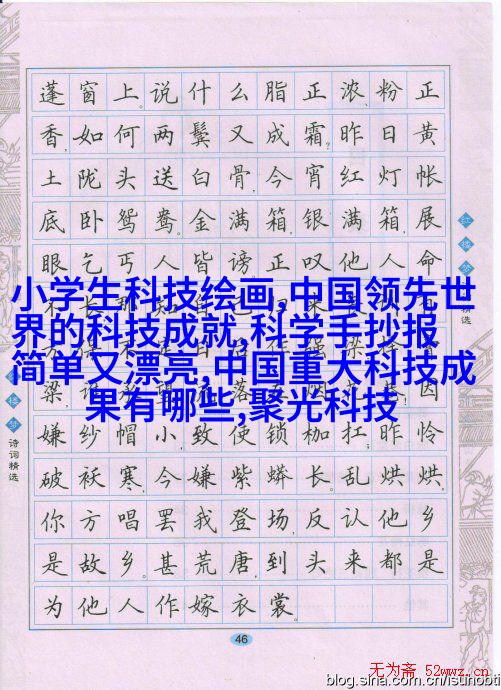 蓬窗上。说什么脂正浓、粉正
香,如何两鬓又成霜?昨日黄
土陇头送白骨,今宵红灯帐
底卧鸳鸯。金满箱,银满箱,展
眼乞丐人皆谤。正叹他人命
小学生科技绘画,中国领先世
界的科技成就,科学手抄报
简单又漂亮,中国重大科技成
果有哪些,聚光科技
梁 因
嫌纱帽小,致使锁枷扛;昨怜
破袄寒,今嫌紫蟒长。乱烘烘,
你方唱罢我登场,反认他乡
是故乡。甚荒唐,到头来都是
为他人作嫁衣裳
红楼梦
精选
楼梦
诗词精选
46
无为斋 52wwz.cn
blog.sina.com.cn/isunobt